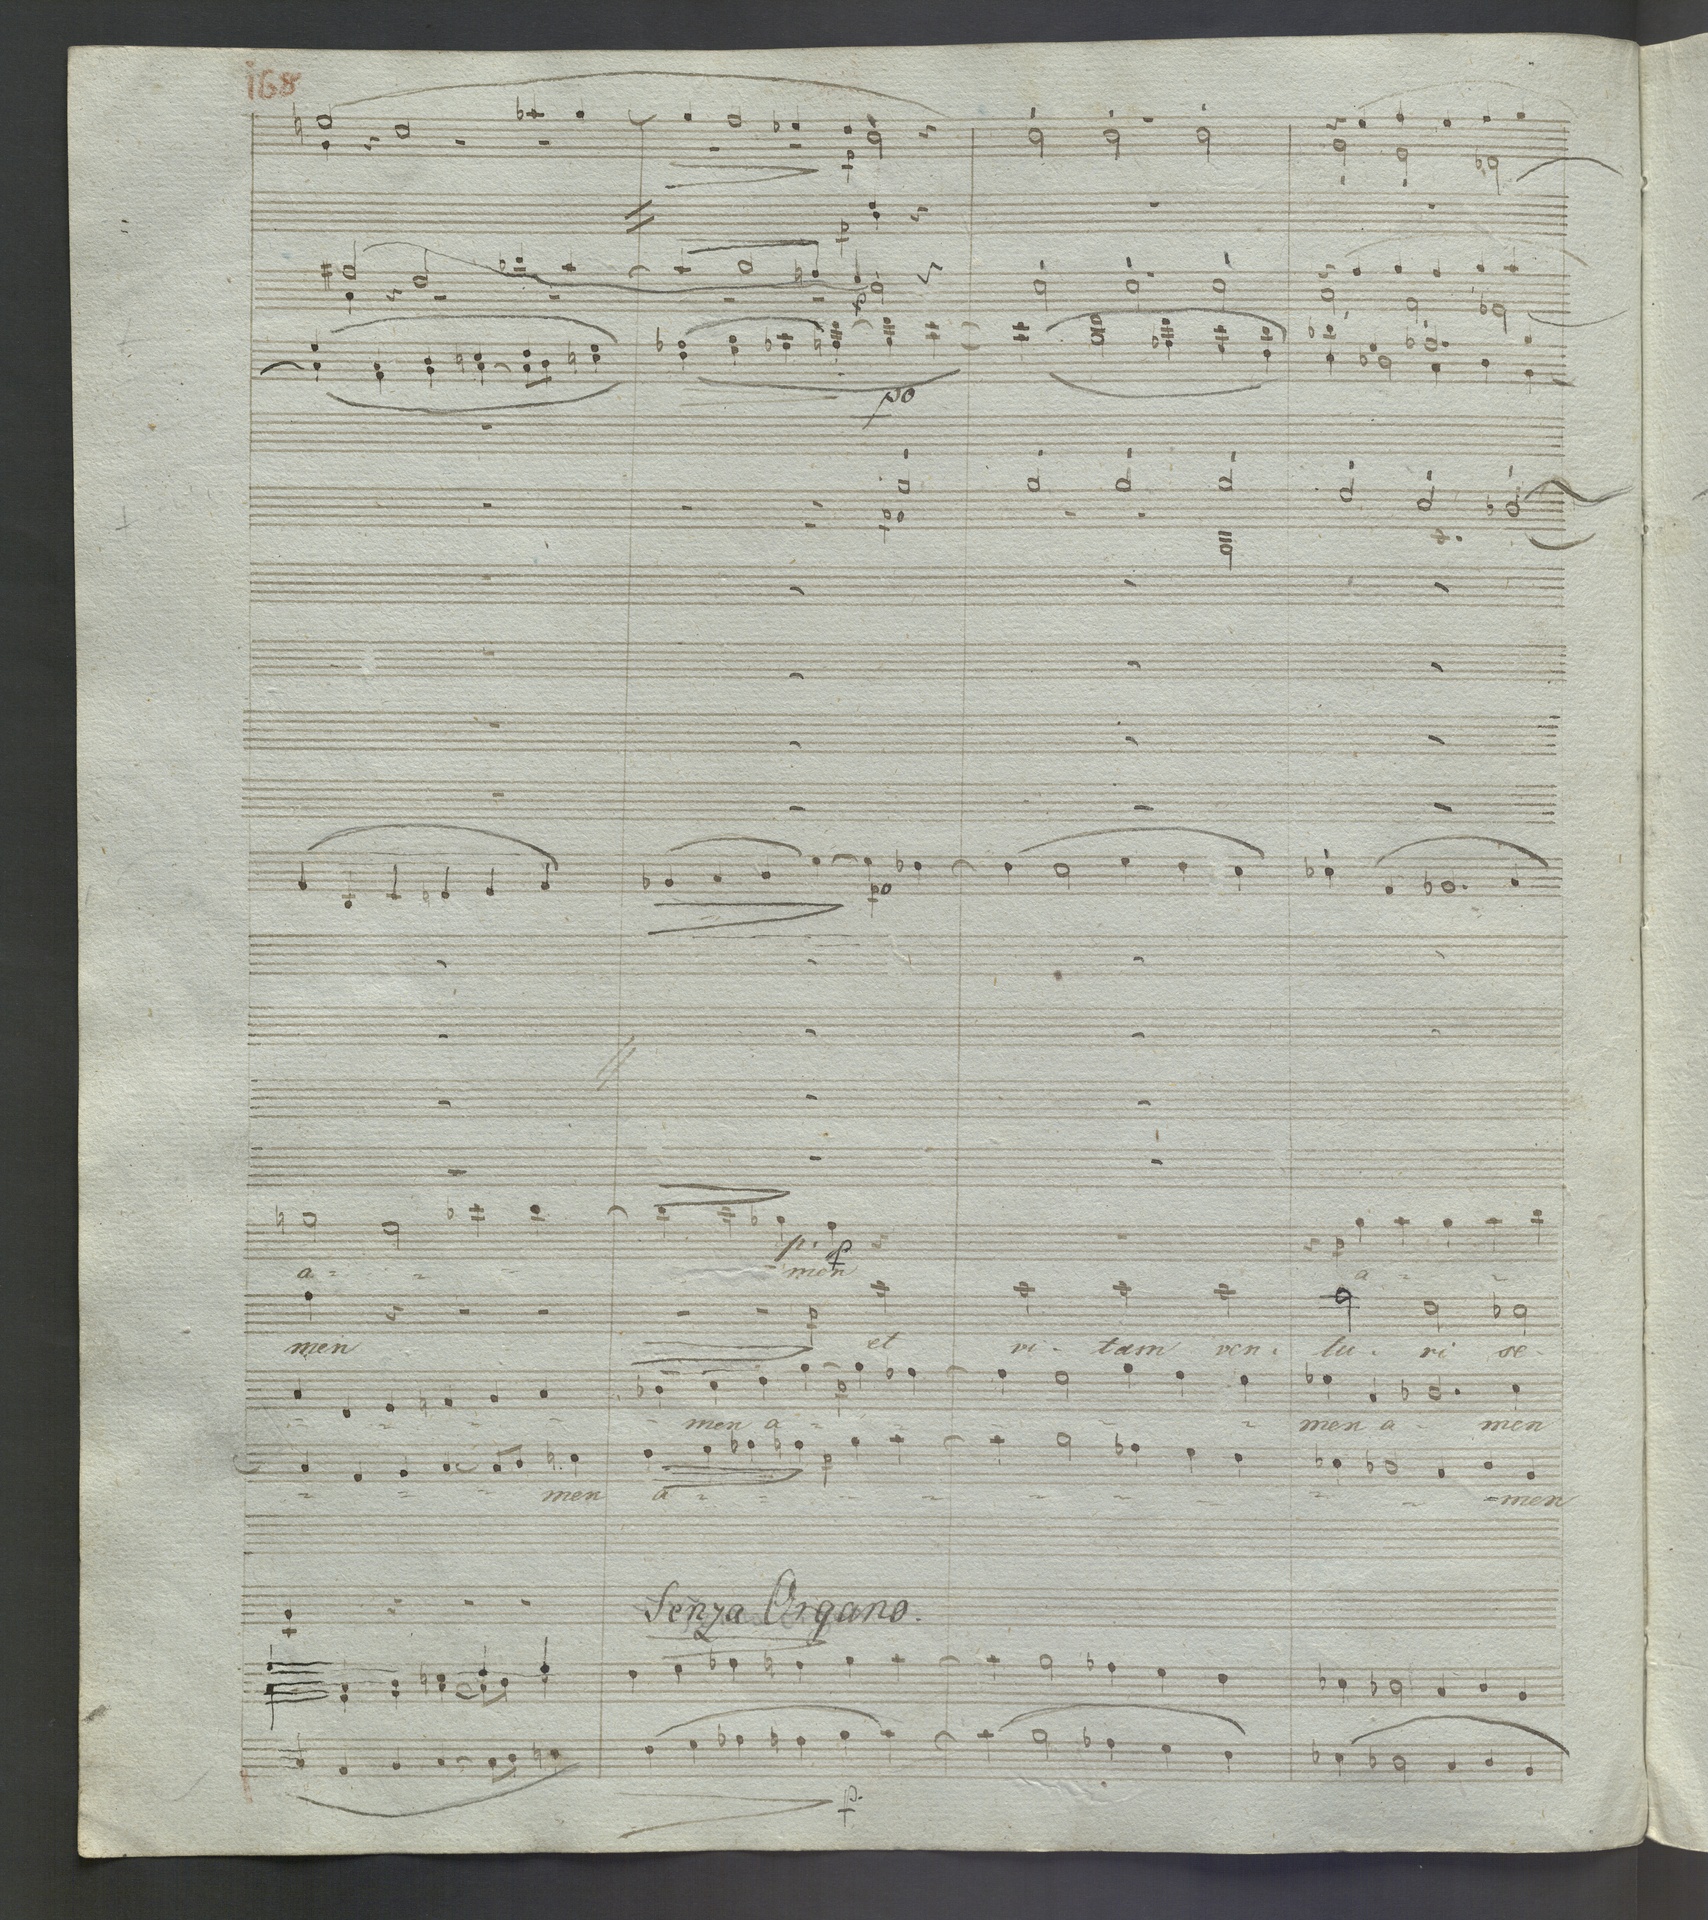 168
po
po
a - - -
- men
a - -
men
et vi - tam ven - tu - ri se -
- - - - - - men a - - - - - men a - men
- - - men a - - - - - - - - - men
Senza Organo.